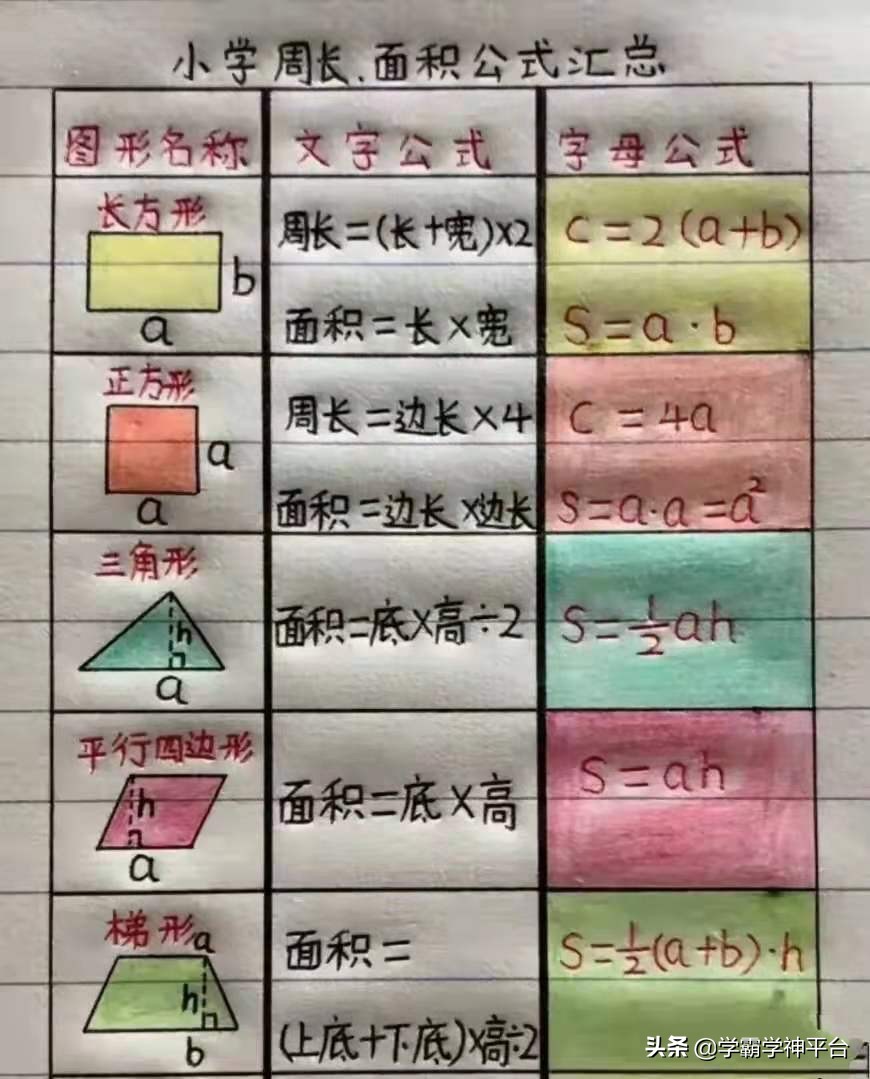 小学周长、面积公式汇总
图形名称 文字公式 字母公式
长方形
周长=(长+宽)×2 C=2(a+b)
b
a
面积=长×宽 S=a·b
正方形
周长=边长×4 C=4a
a
a
面积=边长×边长 S=a·a=a²
三角形
h
a
面积=底×高÷2 S=½ah
平行四边形
h
a
面积=底×高 S=ah
梯形
a
h
b
面积= S=½(a+b)·h
(上底+下底)×高÷2
头条 @学霸学神平台